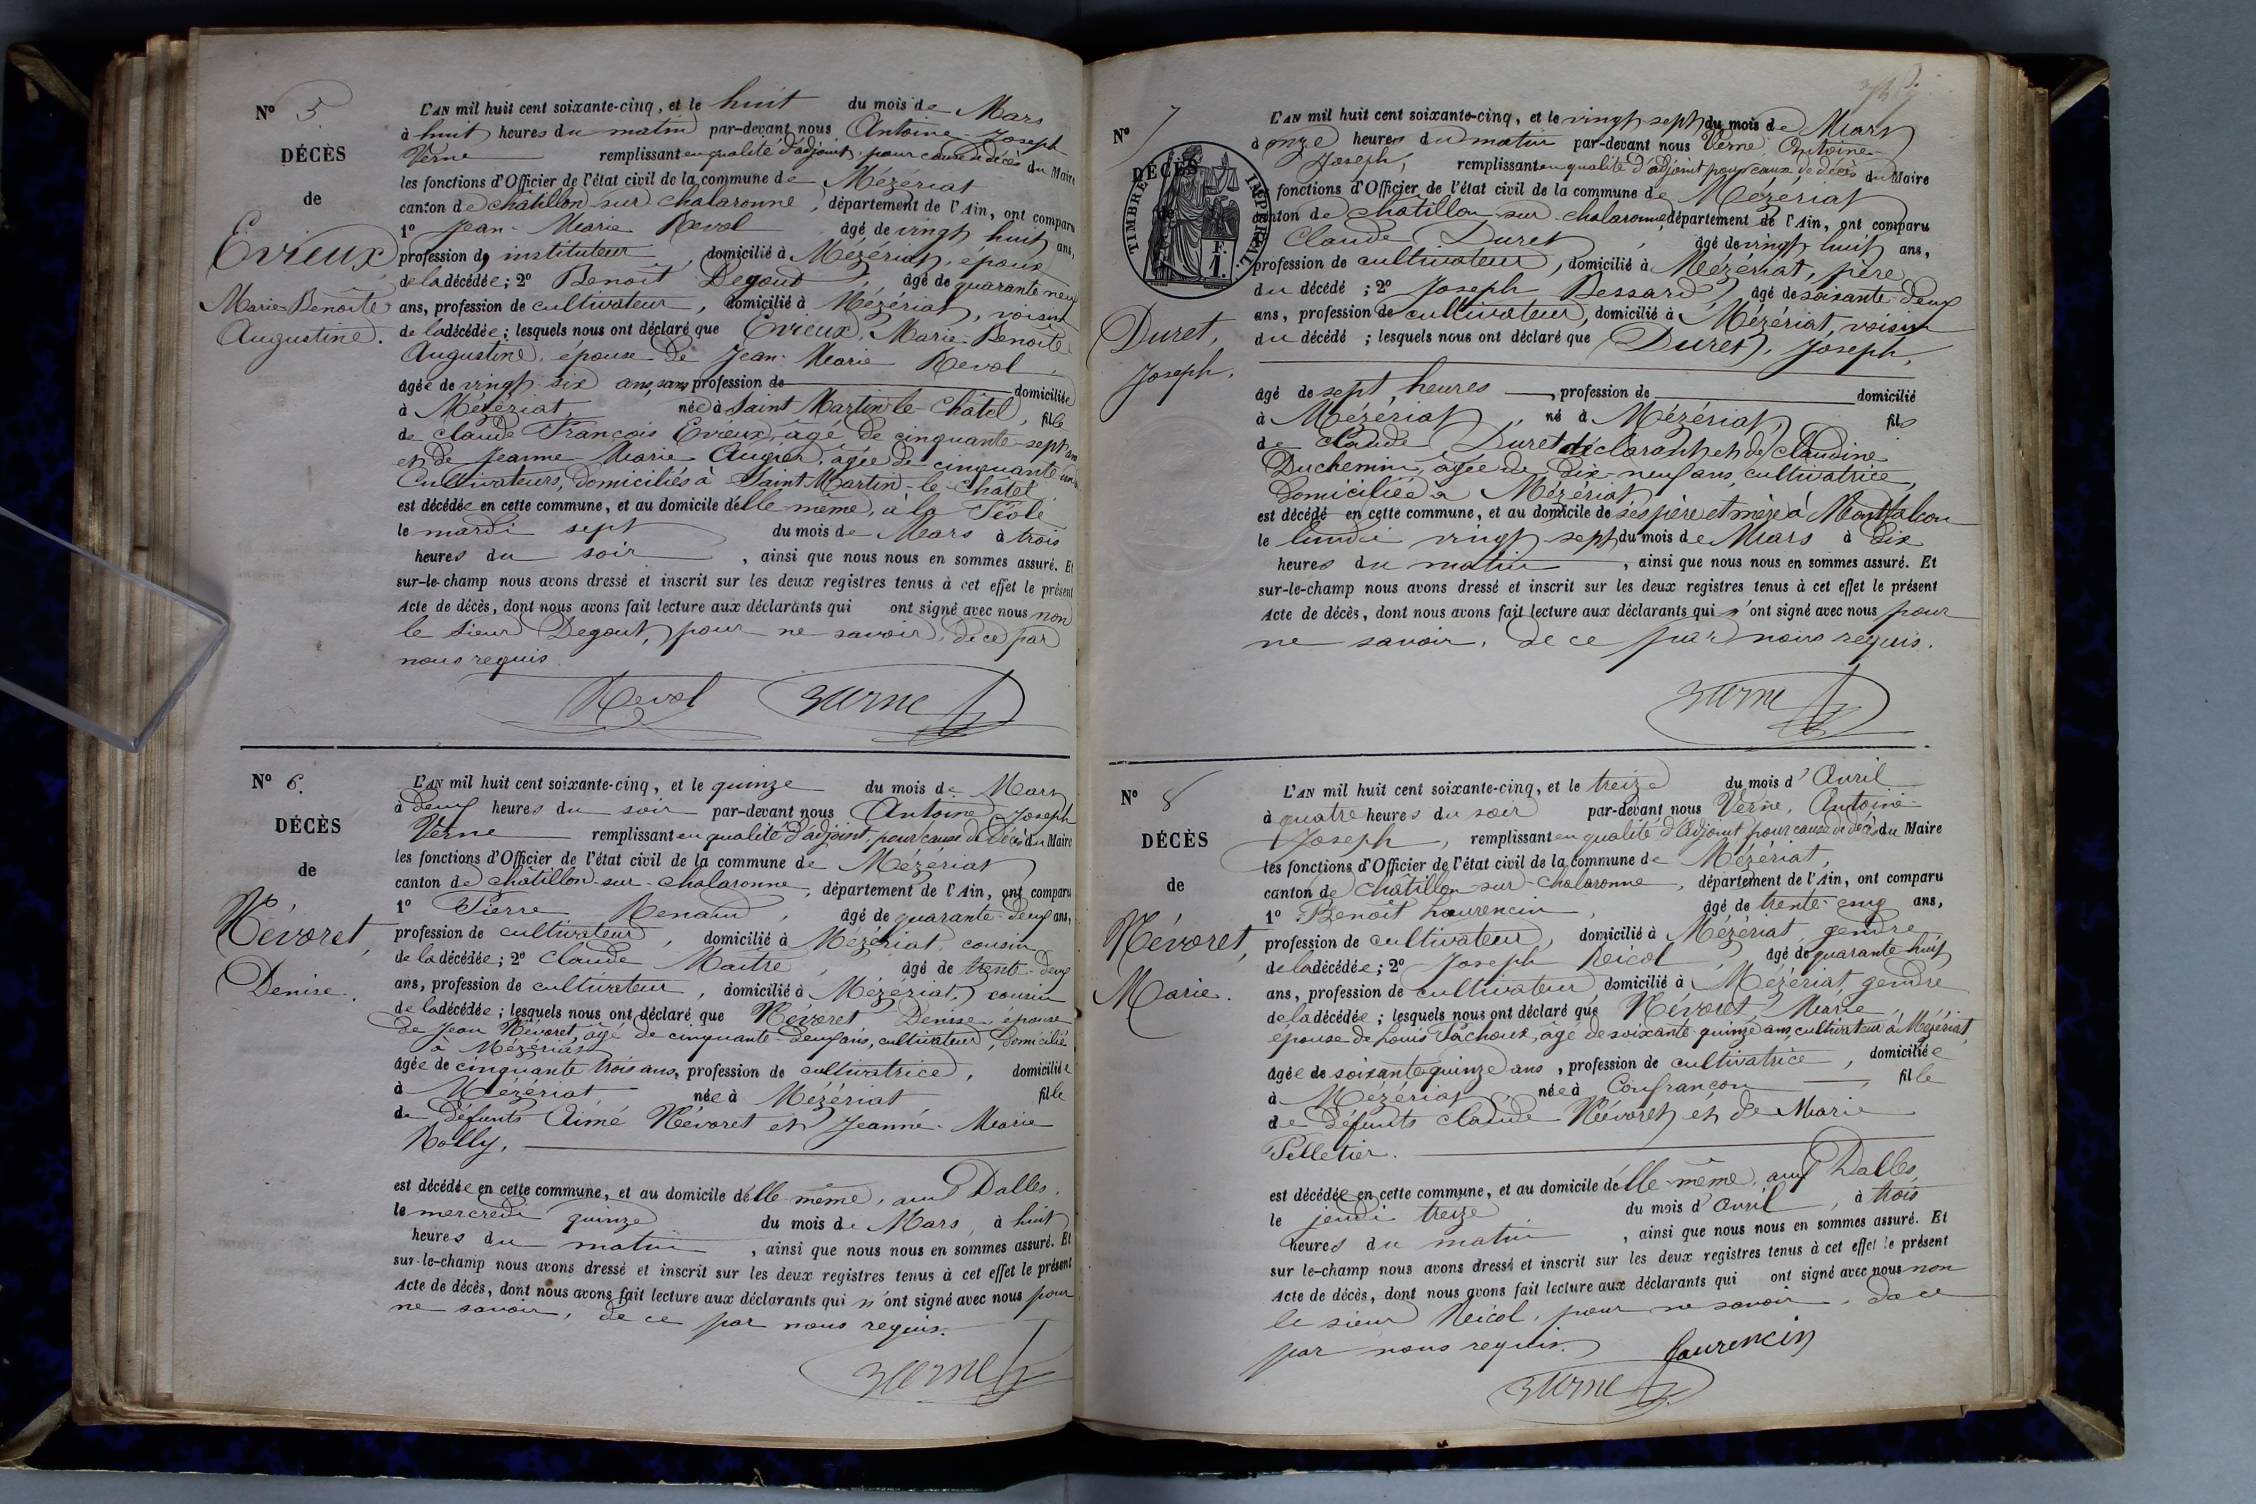 N° 5
DÉCÈS
de
Evieux
Marie-Benoîte
Augustine.
L'AN mil huit cent soixante-cinq, et le huit du mois de Mars
à huit heures du matin par-devant nous Antoine-Joseph
Verne remplissant en qualité d'adjoint pour cause de décès du Maire
les fonctions d'Officier de l'état civil de la commune de Mézériat
canton de chatillon sur chalaronne, département de l'Ain, ont comparu
1° Jean-Marie Revol âgé de vingt huit ans,
profession de instituteur, domicilié à Mézériat, époux
de la décédée; 2° Benoît Degout, âgé de quarante neuf
ans, profession de cultivateur, domicilié à Mézériat, voisin
de la décédée; lesquels nous ont déclaré que Evieux, Marie-Benoîte
Augustine, épouse de Jean-Marie Revol,
âgée de vingt-six ans, sans profession de domiciliée
à Mézériat, née à Saint Martin-le-Châtel, fille
de claude François Evieux, âgé de cinquante-sept ans
et de Jeanne-Marie, âgée de cinquante
Cultivateurs, domiciliés à Saint Martin-le-Châtel,
est décédée en cette commune, et au domicile d'elle-même, à la
le mardi sept du mois de Mars à trois
heures du soir, ainsi que nous nous en sommes assuré. Et
sur-le-champ nous avons dressé et inscrit sur les deux registres tenus à cet effet le présent
Acte de décès, dont nous avons fait lecture aux déclarants qui ont signé avec nous non
le sieur Degout, pour ne savoir, de ce par
nous requis.
Revol Verne
N° 6.
DÉCÈS
de
Névoret,
Denise.
L'AN mil huit cent soixante-cinq, et le quinze du mois de Mars
à deux heures du soir par-devant nous Antoine-Joseph
Verne remplissant en qualité d'adjoint, pour cause de décès du Maire
les fonctions d'Officier de l'état civil de la commune de Mézériat
canton de châtillon-sur-chalaronne, département de l'Ain, ont comparu
1° Pierre Renaud, âgé de quarante-deux ans,
profession de cultivateur, domicilié à Mézériat, cousin
de la décédée; 2° Claude Maitre, âgé de trente-deux
ans, profession de cultivateur, domicilié à Mézériat, cousin
de la décédée; lesquels nous ont déclaré que Névoret Denise, épouse
de Jean Névoret, âgé de cinquante-deux ans, cultivateur, domicilié
à Mézériat,
âgée de cinquante trois ans, profession de cultivatrice, domiciliée
à Mézériat, née à Mézériat fille
de défunts Aimé Névoret et Jeanne-Marie
Rolly,
est décédée en cette commune, et au domicile d'elle-même, aux Dalles,
le mercredi quinze du mois de Mars, à huit
heures du matin, ainsi que nous nous en sommes assuré. Et
sur-le-champ nous avons dressé et inscrit sur les deux registres tenus à cet effet le présent
Acte de décès, dont nous avons fait lecture aux déclarants qui n'ont signé avec nous pour
ne savoir, de ce par nous requis.
Verne
N° 7
DÉCÈS
de
TIMBRE IMPÉRIAL.
F.
1.
Duret,
Joseph.
L'AN mil huit cent soixante-cinq, et le vingt sept du mois de Mars
à onze heures du matin par-devant nous Verne Antoine-
Joseph, remplissant en qualité d'adjoint pour cause de décès du Maire
fonctions d'Officier de l'état civil de la commune de Mézériat
canton de châtillon-sur-chalaronne, département de l'Ain, ont comparu
Claude Duret, âgé de vingt-huit ans,
profession de cultivateur, domicilié à Mézériat, père
du décédé; 2° Joseph Bessard, âgé de soixante-deux
ans, profession de cultivateur, domicilié à Mézériat, voisin
du décédé; lesquels nous ont déclaré que Duret, Joseph,
âgé de sept heures, profession de domicilié
à Mézériat, né à Mézériat, fils
de Claude Duret déclarant et de Claudine
Duchemin, âgée de dix-neuf ans, cultivatrice,
domiciliée à Mézériat,
est décédé en cette commune, et au domicile de ses père et mère à Montfalcon
le lundi vingt sept du mois de Mars à dix
heures du matin, ainsi que nous nous en sommes assuré. Et
sur-le-champ nous avons dressé et inscrit sur les deux registres tenus à cet effet le présent
Acte de décès, dont nous avons fait lecture aux déclarants qui n'ont signé avec nous pour
ne savoir, de ce par nous requis.
Verne
N° 8
DÉCÈS
de
Névoret,
Marie.
L'AN mil huit cent soixante-cinq, et le treize du mois d'Avril
à quatre heures du soir par-devant nous Verne, Antoine-
Joseph, remplissant en qualité d'Adjoint pour cause de décès du Maire
les fonctions d'Officier de l'état civil de la commune de Mézériat,
canton de châtillon-sur-chalaronne, département de l'Ain, ont comparu
1° Benoît Laurencin, âgé de trente-cinq ans,
profession de cultivateur, domicilié à Mézériat, gendre
de la décédée; 2° Joseph Neicol, âgé de quarante huit
ans, profession de cultivateur domicilié à Mézériat, gendre
de la décédée; lesquels nous ont déclaré que Névoret, Marie
épouse de Louis Pachoux, âgé de soixante-quinze ans, cultivateur à Mézériat,
âgée de soixante quinze ans, profession de cultivatrice, domiciliée
à Mézériat, née à Confrançon, fille
de défunts Claude Névoret et de Marie
Pelletier.
est décédée en cette commune, et au domicile d'elle-même, aux Dalles,
le jeudi treize du mois d'avril, à trois
heures du matin, ainsi que nous nous en sommes assuré. Et
sur le-champ nous avons dressé et inscrit sur les deux registres tenus à cet effet le présent
Acte de décès, dont nous avons fait lecture aux déclarants qui ont signé avec nous non
le sieur Neicol, pour ne savoir, de ce
par nous requis.
Laurencin
Verne